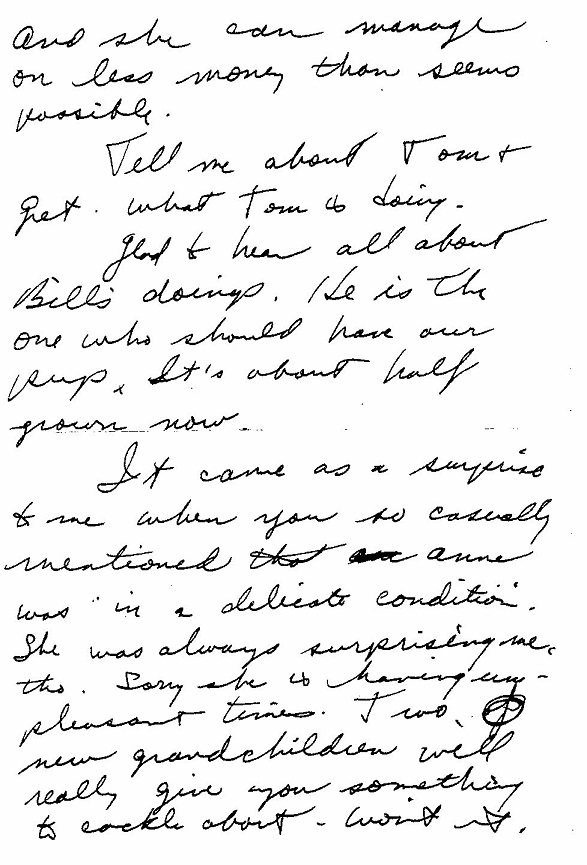 And she can manage
on less money than seems
possible.
Tell me about Tom +
Gret. what Tom is doing.
Glad to hear all about
Bill's doings. He is the
one who should have our
pup. It's about half
grown now.
It came as a surprise
to me when you so casually
mentioned that Anne
was "in a delicate condition.
She was always surprising me,
tho. Sorry she is having un-
pleasant times. Two
new grandchildren will
really give you something
to cackle about - won't it.